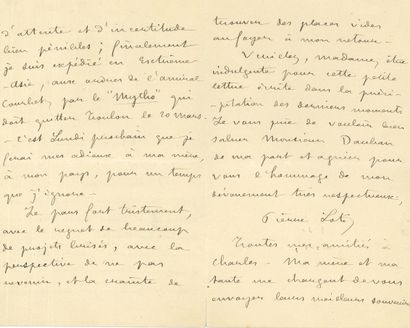 d'attente et d'incertitude
bien pénibles ; finalement
je suis expédié en Extrême-
Asie, aux ordres de l'amiral
Courbet, par le "Mytho" qui
doit quitter Toulon le 20 mars.
- C'est Lundi prochain que je
ferai mes adieux à ma mère,
à mon pays, pour un temps
que j'ignore -
Je pars fort tristement,
avec le regret de beaucoup
de projets brisés, avec la
perspective de ne pas
revenir, et la crainte de
trouver des places vides
au foyer à mon retour -
Veuillez, madame, être
indulgente pour cette petite
lettre écrite dans la préci-
pitation des derniers moments
Je vous prie de vouloir bien
saluer Monsieur
de ma part et agréer pour
vous l'hommage de mon
dévouement très respectueux,
Pierre Loti
Toutes mes amitiés à
Charles - Ma mère et ma
tante me chargent de vous
envoyer leurs meilleurs souvenirs